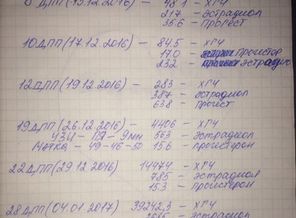 8 ДПП (15.12.2016) - 48.1 - ХГЧ
217 - эстрадиол
35.6 - прогест
10 ДПП (17.12.2016) - 84.5 - ХГЧ
17.0 - прогистер
232 - эстрадиол
12 ДПП (19.12.2016) - 283 - ХГЧ
387 - эстрадиол
638 - прогест
19 ДПП (26.12.2016) - 4406 - ХГЧ
УЗИ - ПЯ - 9мм 563 - эстрадиол
МАТКА - 49-46-50 15.6 - прогистерон
22 ДПП (29.12.2016) 14474 - ХГЧ
785 - эстрадиол
15.3 - прогистерон
28 ДПП (04.01.2017) 39242.3 - ХГЧ
эстрадиол